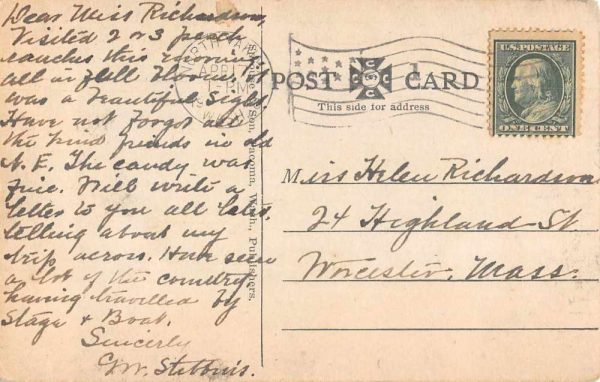 Dear Miss Richardson,
Visited 2 or 3 peach
ranches this morning
all in full bloom. It
was a beautiful sight.
Have not forgot all
the kind friends in old
N. E. The candy was
fine. Will write a
letter to you all later,
telling about my
trip across. Have seen
a lot of the country
having travelled by
Stage & Boat.
Sincerely
G.W. Stebbins.
& Son, Tacoma, Wash., Publishers.
NORTH YAKIMA
APR
WASH
POST CARD
This side for address
U.S. POSTAGE
ONE CENT
Miss Helen Richardson
24 Highland St
Worcester, Mass.